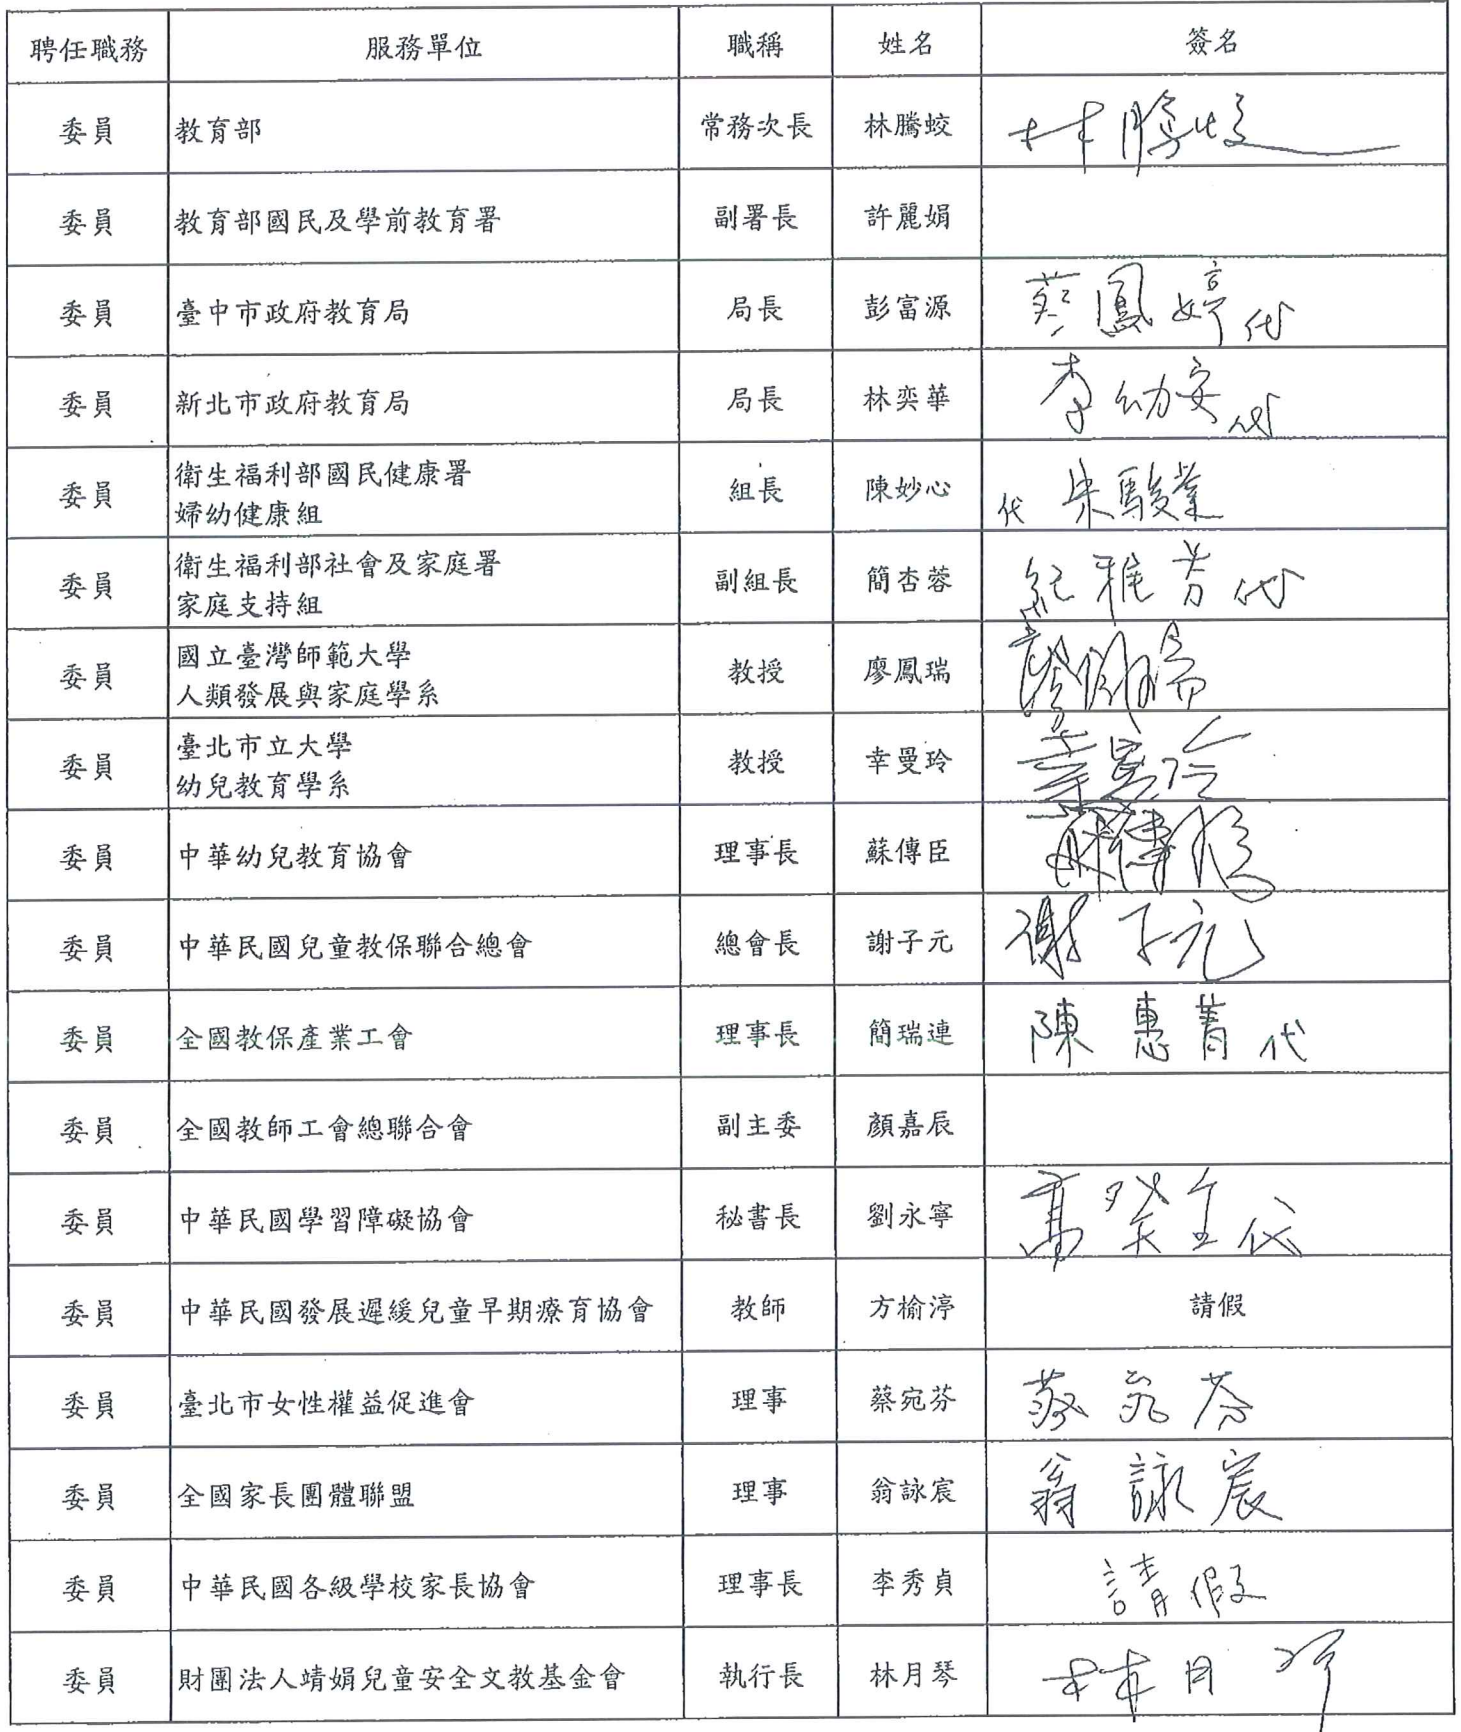 聘任職務 服務單位 職稱 姓名 簽名
委員 教育部 常務次長 林騰蛟 林騰蛟
委員 教育部國民及學前教育署 副署長 許麗娟
委員 臺中市政府教育局 局長 彭富源 蔡鳳婷代
委員 新北市政府教育局 局長 林奕華 李幼安代
委員 衛生福利部國民健康署
婦幼健康組 組長 陳妙心 代 朱駿業
委員 衛生福利部社會及家庭署
家庭支持組 副組長 簡杏蓉 紀雅芳代
委員 國立臺灣師範大學
人類發展與家庭學系 教授 廖鳳瑞 廖鳳瑞
委員 臺北市立大學
幼兒教育學系 教授 幸曼玲 幸曼玲
委員 中華幼兒教育協會 理事長 蘇傳臣
委員 中華民國兒童教保聯合總會 總會長 謝子元 謝子元
委員 全國教保產業工會 理事長 簡瑞連 陳惠菁代
委員 全國教師工會總聯合會 副主委 顏嘉辰
委員 中華民國學習障礙協會 秘書長 劉永寧 代
委員 中華民國發展遲緩兒童早期療育協會 教師 方榆渟 請假
委員 臺北市女性權益促進會 理事 蔡宛芬 蔡宛芬
委員 全國家長團體聯盟 理事 翁詠宸 翁詠宸
委員 中華民國各級學校家長協會 理事長 李秀貞 請假
委員 財團法人靖娟兒童安全文教基金會 執行長 林月琴 林月琴